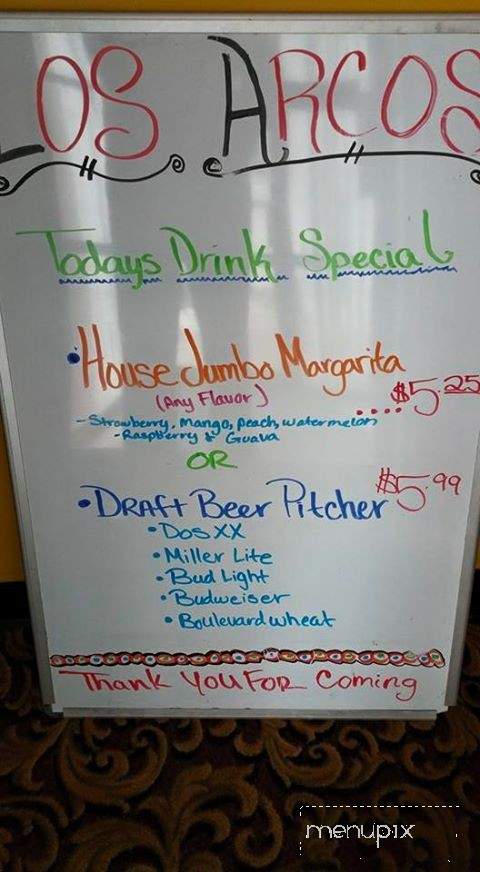 LOS ARCOS
Todays Drink Special
• House Jumbo Margarita
(Any Flavor) ....$5.25
- Strawberry, Mango, Peach, watermelon
- Raspberry & Guava
OR
• DRAft Beer Pitcher $5.99
• Dos XX
• Miller Lite
• Bud Light
• Budweiser
• Boulevard wheat
Thank You FOR Coming
menupix